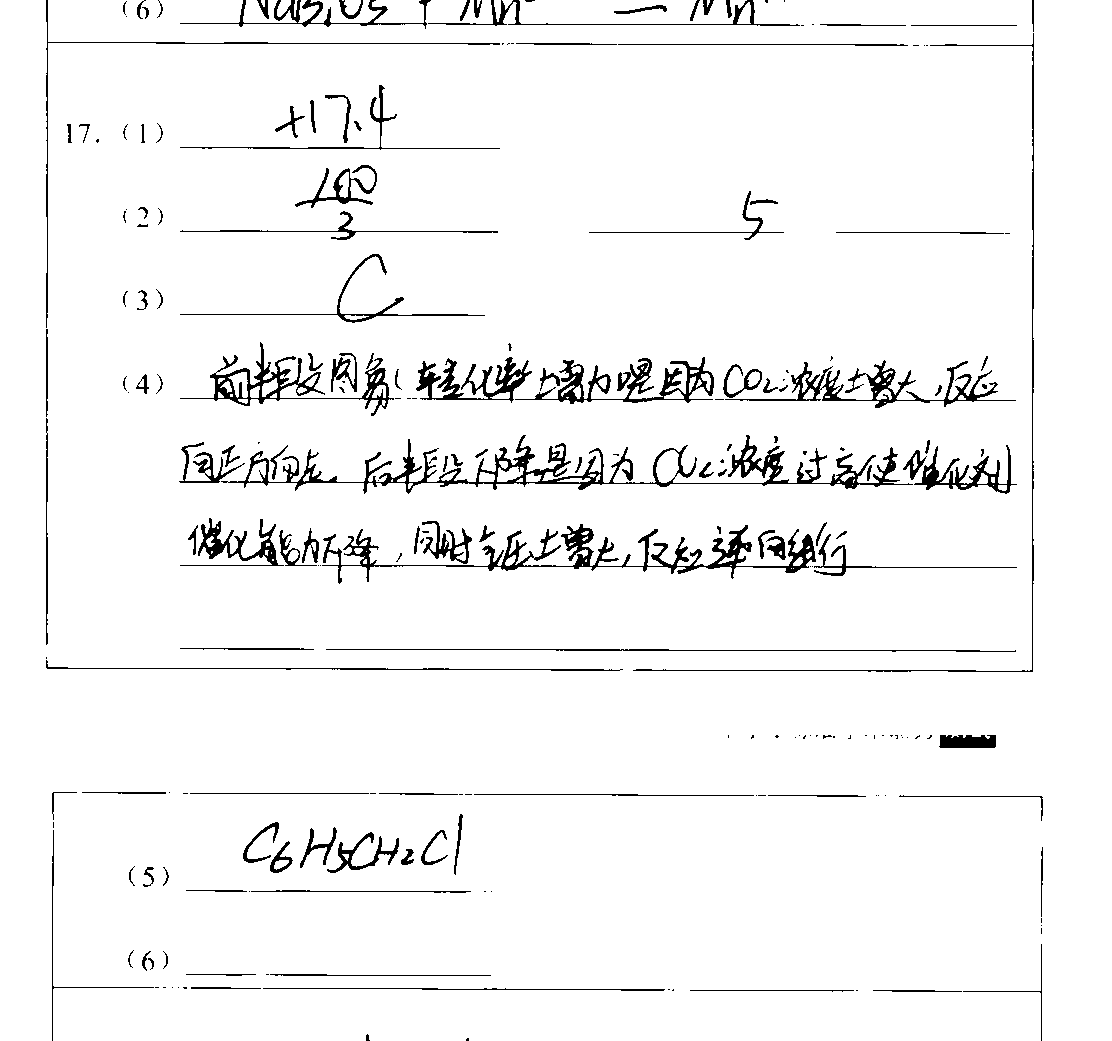 (6) NaBiO3 + Mn
17. (1) +17.4
(2) 100/3 5
(3) C
(4) 前半段图易(转化率上增加是因为CO2浓度上增大,反应
向正方向走。后半段下降是因为CO2浓度过高使催化剂
催化能力下降,同时全压上增大,反应逆向组行
(5) C6H5CH2Cl
(6)